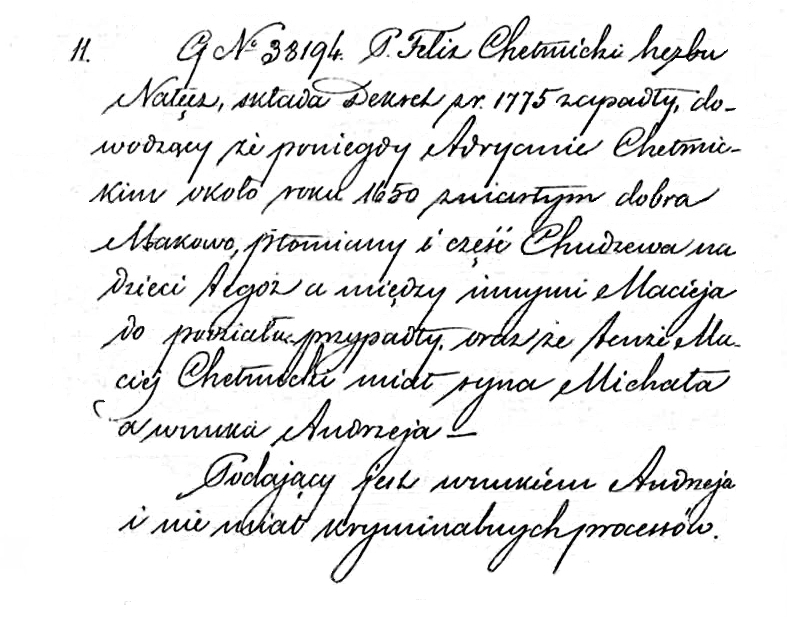 11. G No 38194. P. Felix Chełmicki herbu
Nałęcz, składa Dekret z r. 1775 zapadły, do-
wodzący że po niegdy Adryanie Chełmic-
kim około roku 1650 zmarłym dobra
Makowo, Płomiany i część Chudzewa na
dzieci tegoż a między innymi Macieja
do podziału przypadły, oraz że tenże Ma-
ciej Chełmicki miał syna Michała
a wnuka Andrzeja —
Podający jest wnukiem Andrzeja
i nie miał kryminalnych processów.